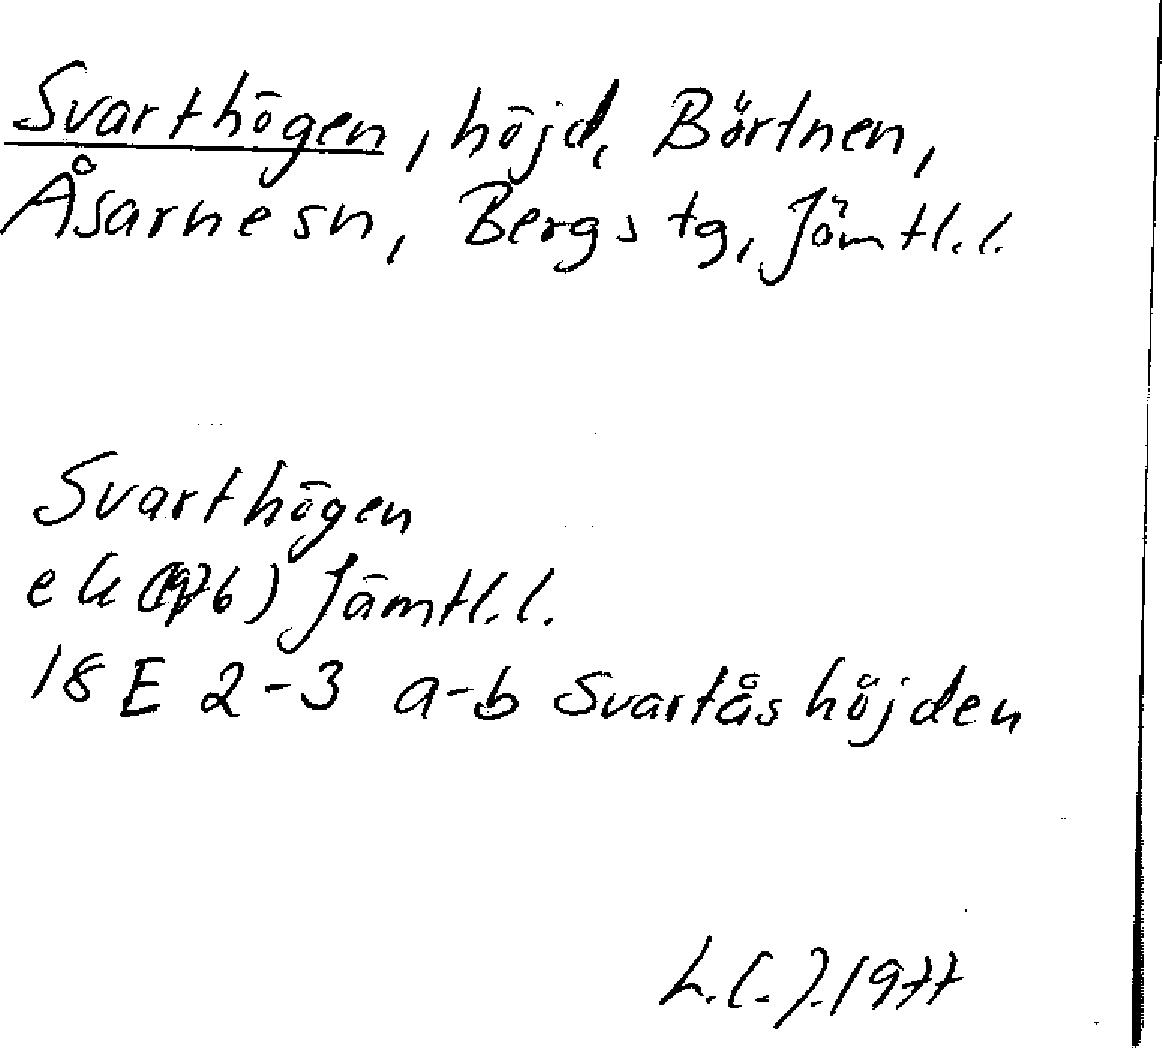 Svarthögen, höjd, Börtnen,
Åsarne sn, Bergs tg, Jämtl. l.
Svarthögen
ek (1976) Jämtl. l.
18 E 2-3 a-b Svartåshöjden
1977